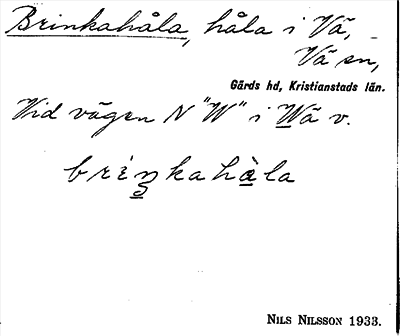 Brinkahåla, håla i Vä,
Vä sn,
Gärds hd, Kristianstads län.
Vid vägen N "W" i Wä v.
NILS NILSSON 1933.